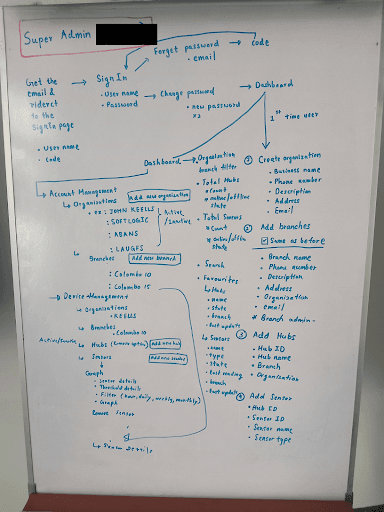 Super Admin
Forgot password → code
• email
Get the
email &
rideret
to the
SignIn page
• User name
• code
→ Sign In
• User name
• Password
→ Change password
• new password
x2
→ Dashboard
1st Time user
Dashboard → Organisation
branch filter
• Total Hubs
• count
• online/offline
state
• Total Sensors
• Count
• online/offline
state
• Search
• Favourites
↳ Hubs
• name
• state
• branch
• last update
↳ Sensors
• name
• type
• state
• last reading
• branch
• last update
↳ Account Management
↳ Organisations
Add new organisation
• ex : JOHN KEELLS
: SOFTLOGIC
: ABANS
: LAUGFS
Active
/Inactive
↳ Branches
Add new branch
: Colombo 10
: Colombo 15
→ Device Management
→ Organisations
• KEELLS
↳ Branches
• Colombo 10
Active/Inactive
↳ Hubs (Remove option)
Add new hub
↳ Sensors
Add new sensor
Graph
• Sensor details
• Threshold details
• Filter (hour, daily, weekly, monthly)
• Graph
Remove Sensor
↳ Sensor Details
① Create organisation
• Business name
• Phone number
• Description
• Address
• Email
② Add branches
☑ Same as before
• Branch name
• Phone number
• Description
• Address
• Organisation
• email
* Branch admin -
③ Add Hubs
• Hub ID
• Hub name
• Branch
• Organisation
④ Add Sensor
• Hub ID
• Sensor ID
• Sensor name
• Sensor type